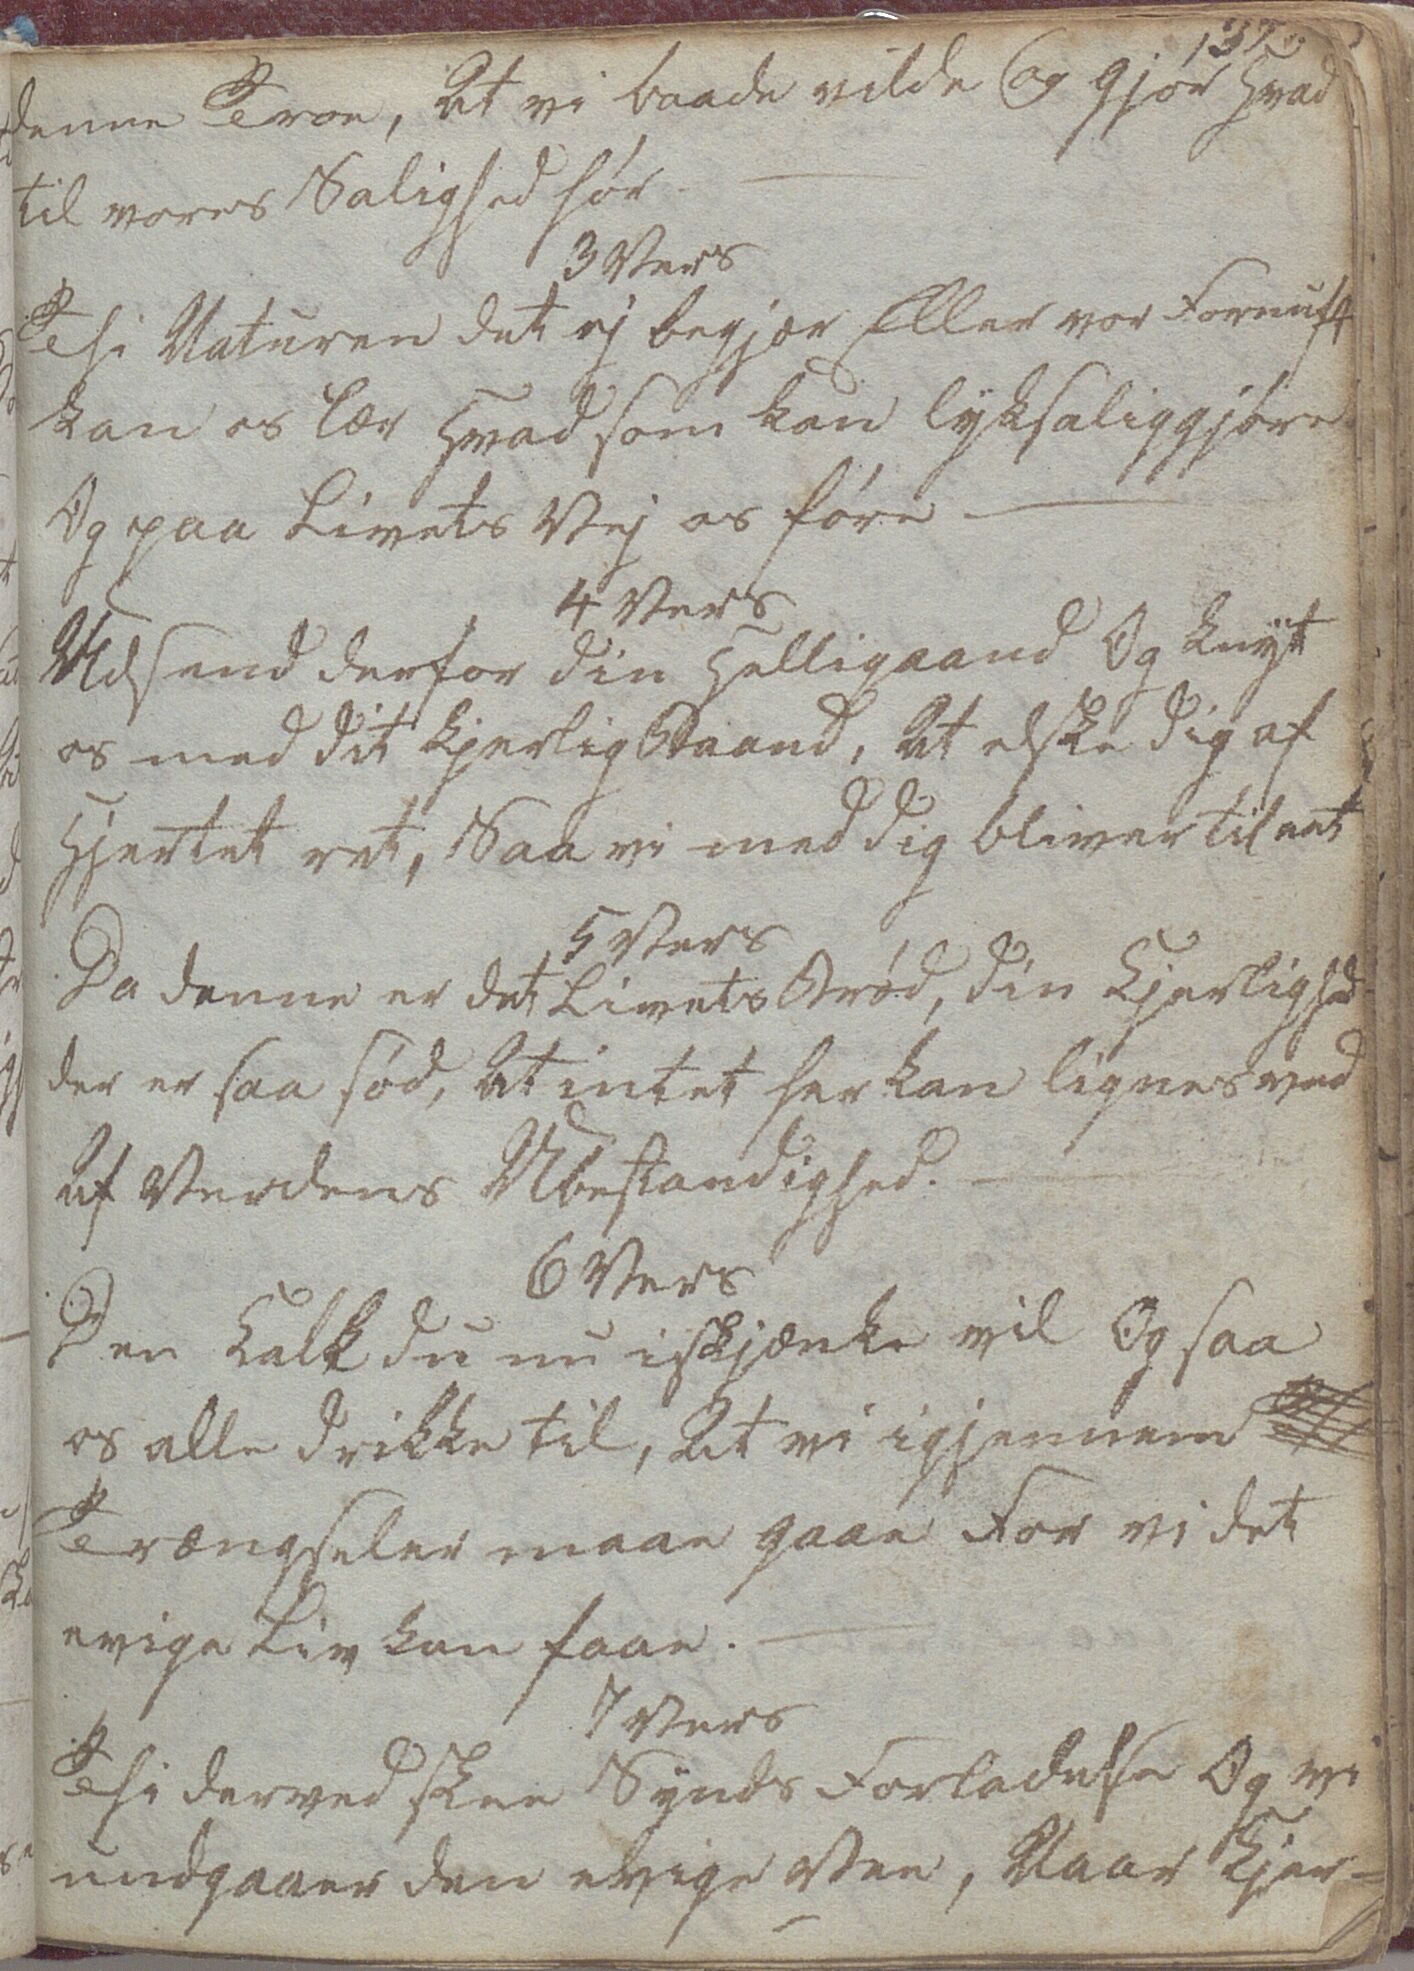 137.
denne Troe, At vi baade vilde og gjør Hvad
til vores Salighed hør
3 Vers
Thi Naturen det ej begjær Eller vor Fornuft
kan os lær Hvad som kan lyksaliggjøre
Og paa Livets Vej os føre
4 Vers
Udsend derfor din Helligaand Og knyt
os med dit Kjerlig Baand, At elske dig af
Hjertet ret, Saa vi med dig bliver til eet
5 Vers
Da denne er det Livets Brød, din Kjerlighed
der er saa sød, At intet her kan lignes ved
Af Verdens Ubestandighed.
6 Vers
Den Kalk du nu iskjænke vil Og saa
os alle drikke til, At vi igjennem
Trængseler maae gaae For vi det
evige Liv kan faae.
7 Vers
Thi derved skee Synds Forladelse Og vi
undgaaer den evige Vee, Naar Kjer-